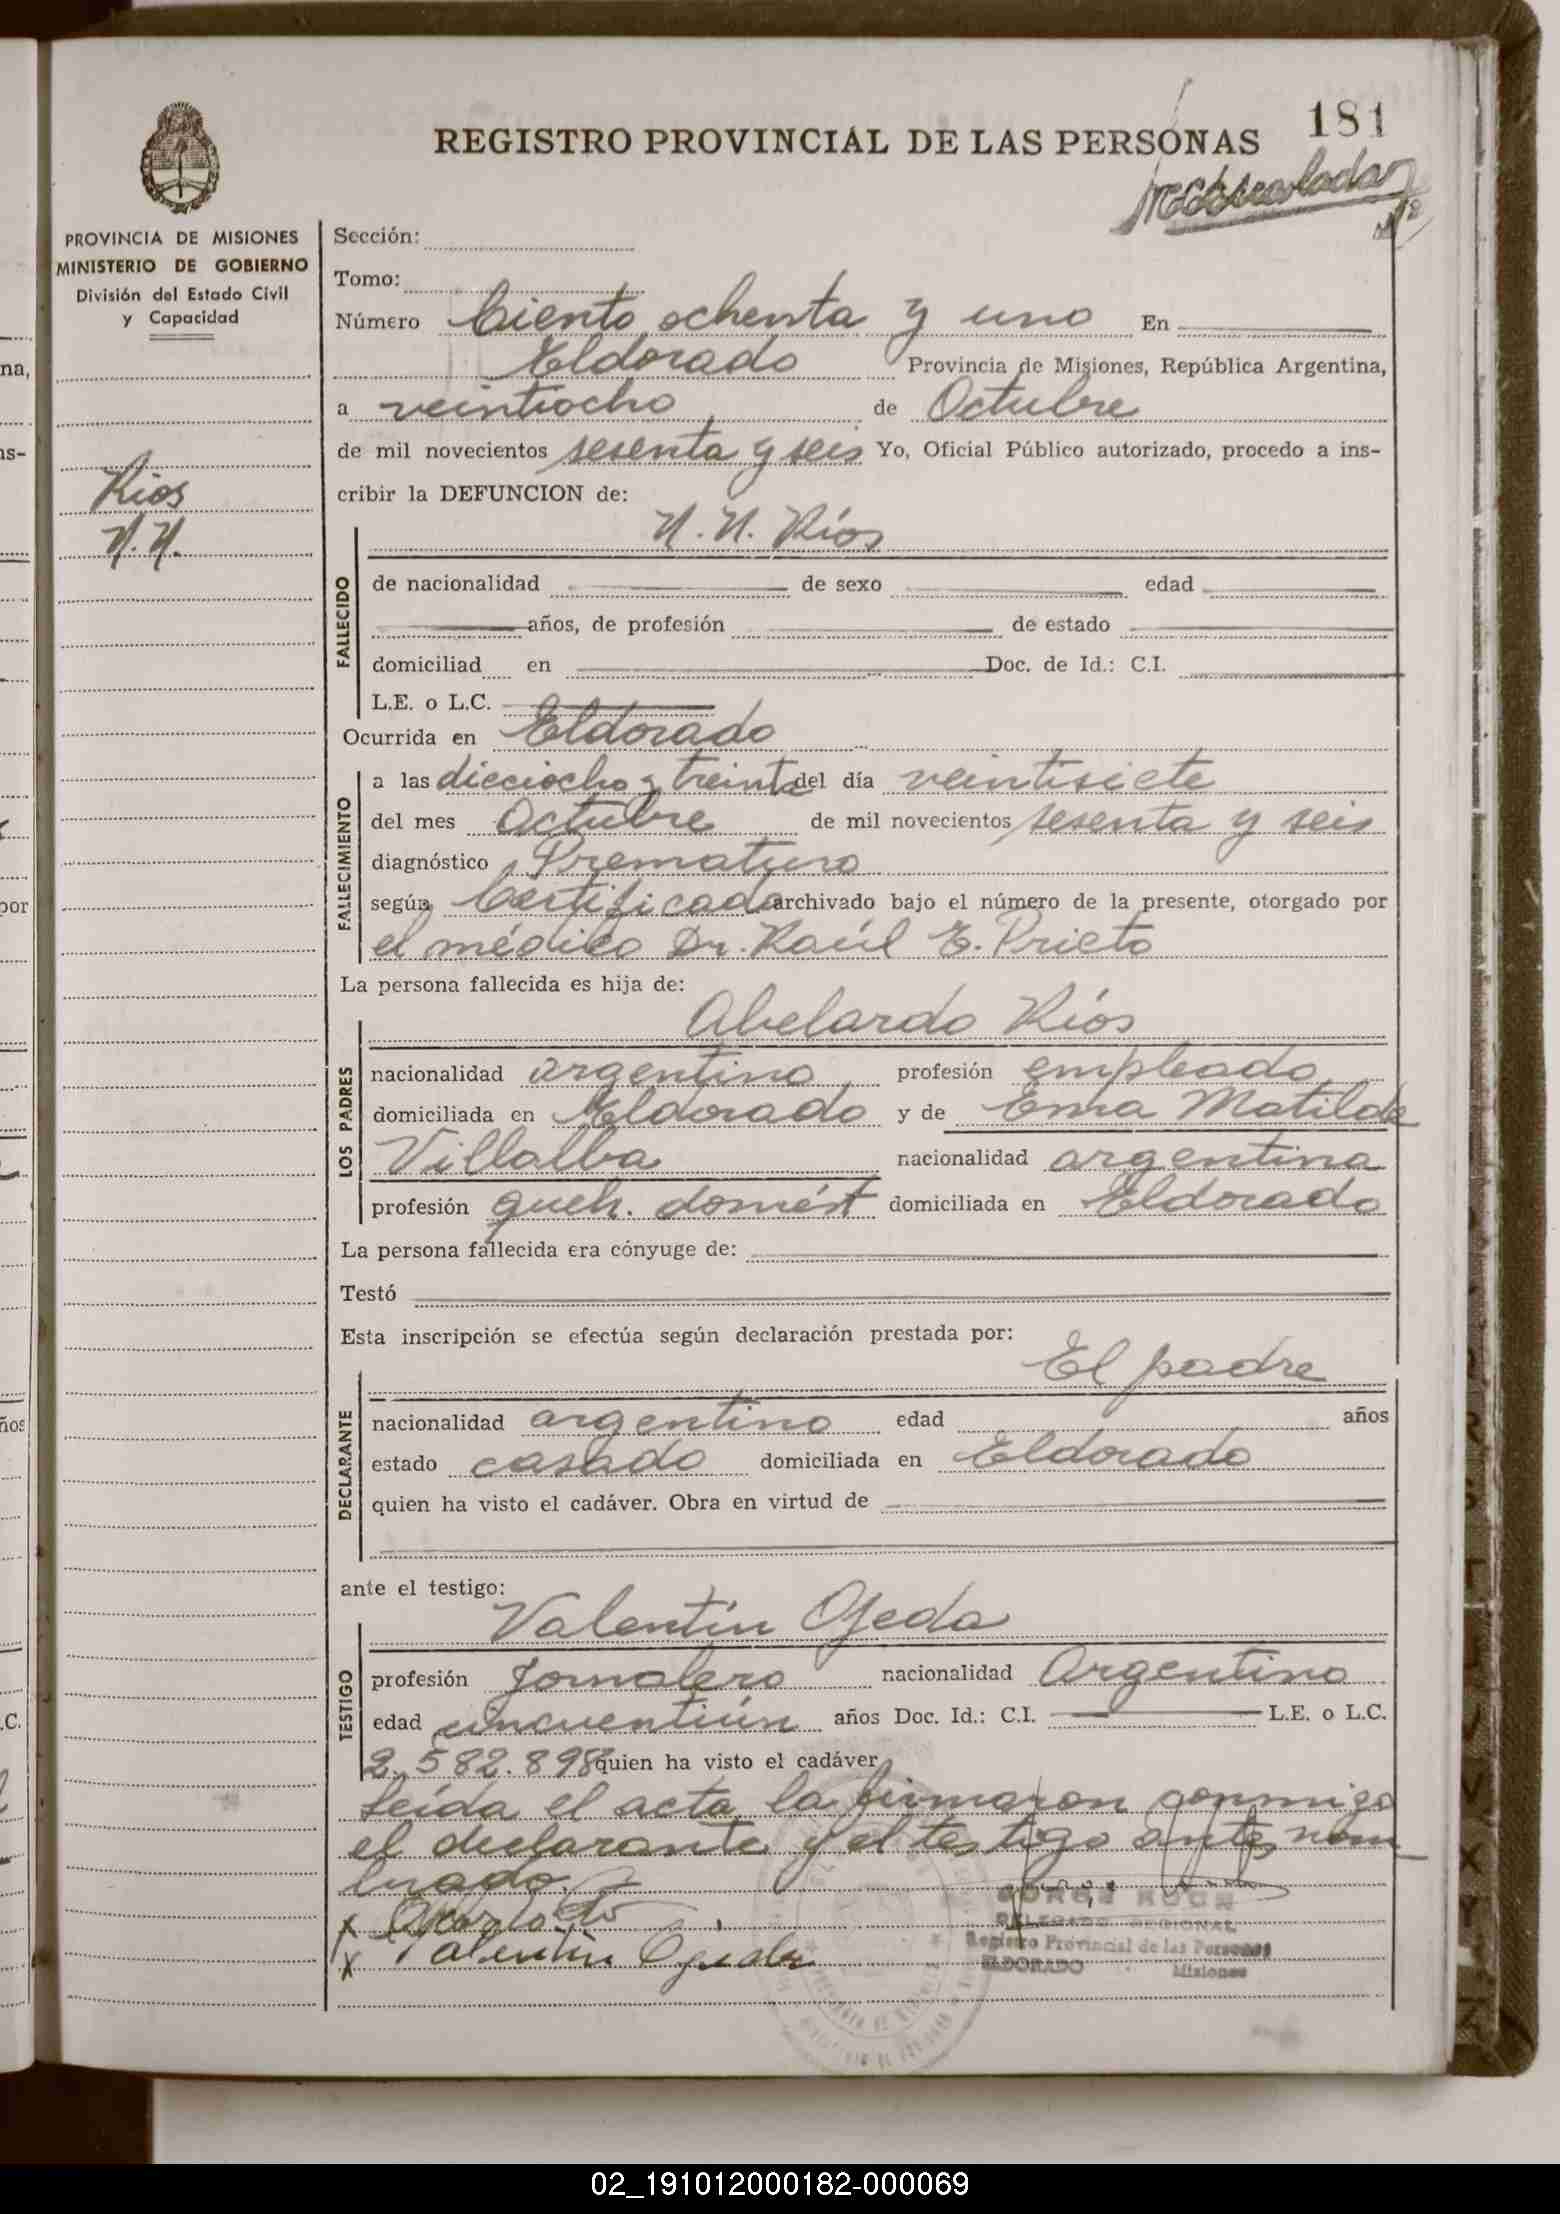 181
REGISTRO PROVINCIAL DE LAS PERSONAS
PROVINCIA DE MISIONES
MINISTERIO DE GOBIERNO
División del Estado Civil
y Capacidad
Rios
N.N.
Sección:
Tomo:
Número Ciento ochenta y uno En
Eldorado Provincia de Misiones, República Argentina,
a veintiocho de Octubre
de mil novecientos sesenta y seis Yo, Oficial Público autorizado, procedo a ins-
cribir la DEFUNCION de:
N. N. Ríos
FALLECIDO
de nacionalidad de sexo edad
años, de profesión de estado
domiciliad en Doc. de Id.: C.I.
L.E. o L.C.
Ocurrida en Eldorado
FALLECIMIENTO
a las dieciocho y treinta del día veintisiete
del mes Octubre de mil novecientos sesenta y seis
diagnóstico Prematuro
según Certificado archivado bajo el número de la presente, otorgado por
el médico Dr. Raúl E. Prieto
La persona fallecida es hija de:
Abelardo Ríos
LOS PADRES
nacionalidad argentino profesión empleado
domiciliada en Eldorado y de Ema Matilde
Villalba nacionalidad argentina
profesión queh. domést domiciliada en Eldorado
La persona fallecida era cónyuge de:
Testó
Esta inscripción se efectúa según declaración prestada por:
El padre
DECLARANTE
nacionalidad argentino edad años
estado casado domiciliada en Eldorado
quien ha visto el cadáver. Obra en virtud de
ante el testigo:
Valentín Ojeda
TESTIGO
profesión Jornalero nacionalidad Argentino
edad cincuentiún años Doc. Id.: C.I. L.E. o L.C.
2.582.898 quien ha visto el cadáver
Leída el acta la firmaron conmigo
el declarante y el testigo antes nom
brado.
x
x Valentin Ojeda
JORGE KOCH
DELEGADO REGIONAL
Registro Provincial de las Personas
ELDORADO Misiones
02_191012000182-000069